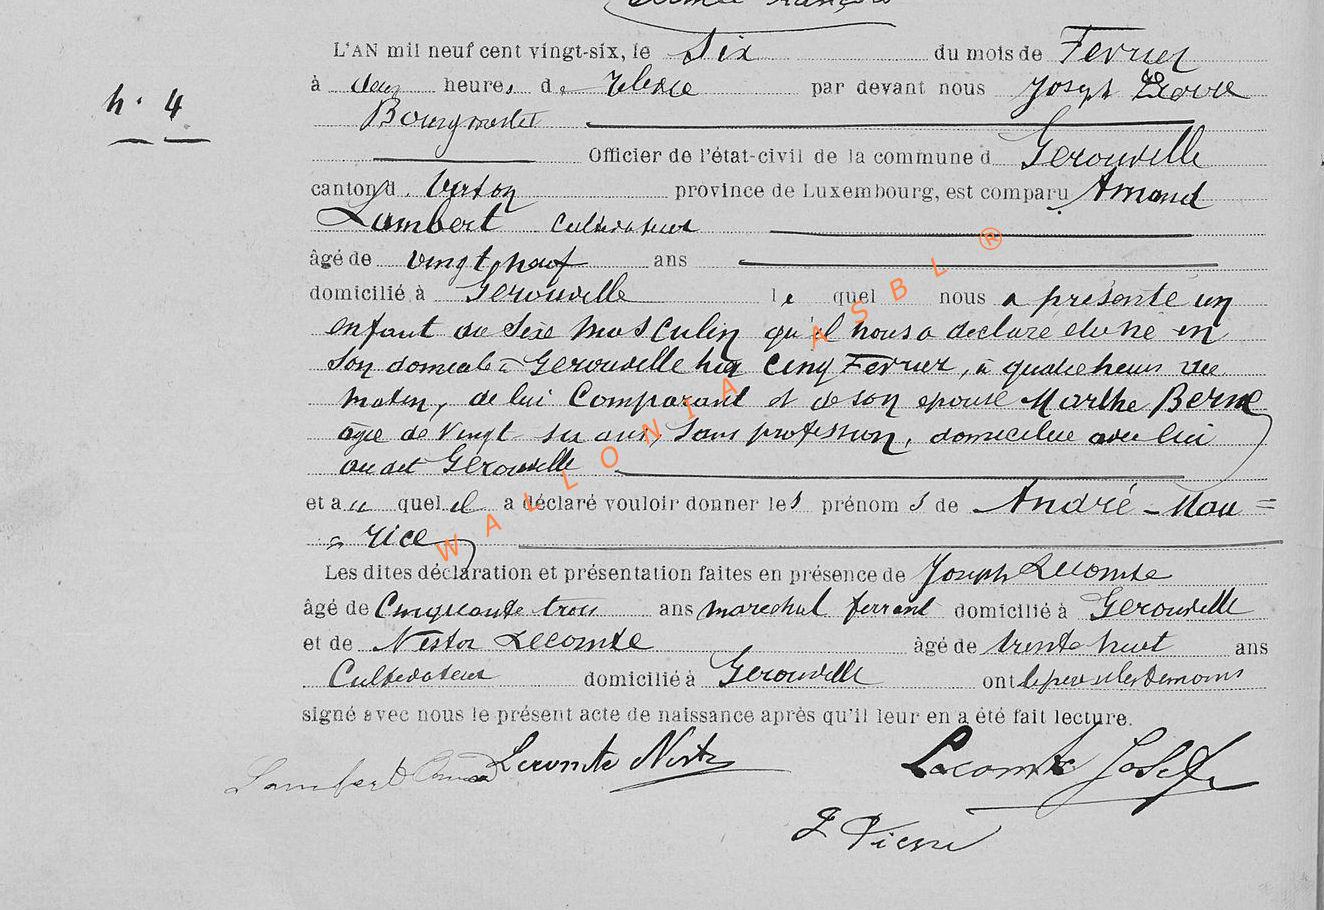 L'AN mil neuf cent vingt-six, le Six du mois de Fevrier
à deux heures de relevée par devant nous Joseph
n. 4
Bourgmestre
Officier de l'état-civil de la commune d Gerouville
canton d Virton province de Luxembourg, est comparu Amand
Lambert Cultivateur
âgé de vingt neuf ans
domicilié à Gerouville le quel nous a présenté un
enfant du Sexe masculin qu'il nous a declaré etre né en
son domicile à Gerouville hier Cinq Fevrier, à quatre heures du
matin, de lui Comparant et de son epouse Marthe Berne
agée de Vingt six ans, Sans profession, domiciliée avec lui
au dit Gerouville
et au quel il a déclaré vouloir donner les prénoms de André - Mau =
= rice
Les dites déclaration et présentation faites en présence de Joseph Lecomte
âgé de Cinquante trois ans marechal ferrant domicilié à Gerouville
et de Nestor Lecomte âgé de trente huit ans
Cultivateur domicilié à Gerouville ont le père et les temoins
signé avec nous le présent acte de naissance après qu'il leur en a été fait lecture.
Lambert Amand Lecomte Nestor Lecomte Josef
WALLONIA ASBL ®